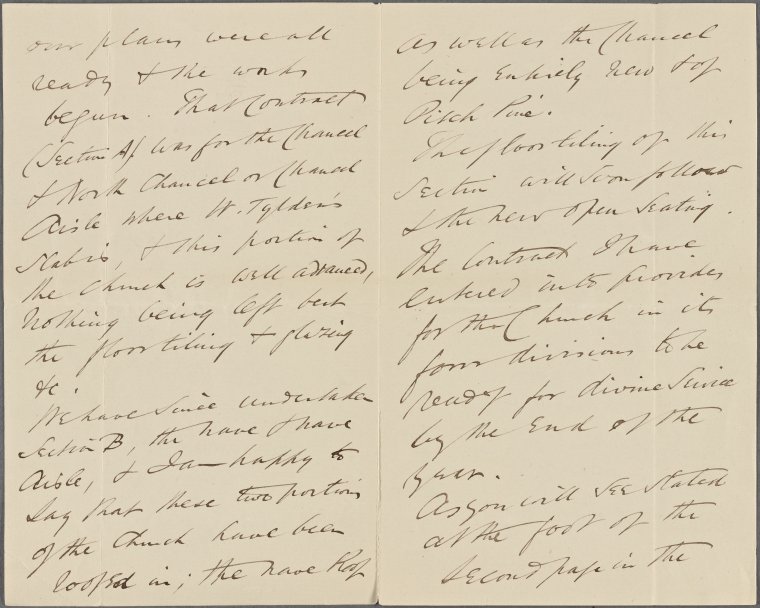 our plans were all
ready & the works
begun. That Contract
(Section A) was for the Chancel
& North Chancel or Chancel
Aisle where W. Tylden's
Slab is, & this portion of
the Church is well advanced,
nothing being left but
the floor tiling & glazing
&c.
We have since undertaken
Section B, the nave & nave
Aisle, & I am happy to
say that these two portions
of the Church have been
roofed in; the nave Roof
as well as the Chancel
being Entirely new & of
Pitch Pine.
The floor tiling of this
Section will soon follow
& the new open Seating.
The Contract I have
entered into provides
for the Church in its
four divisions to be
ready for divine Service
by the End of the
year.
As you will see stated
at the foot of the
second page in the